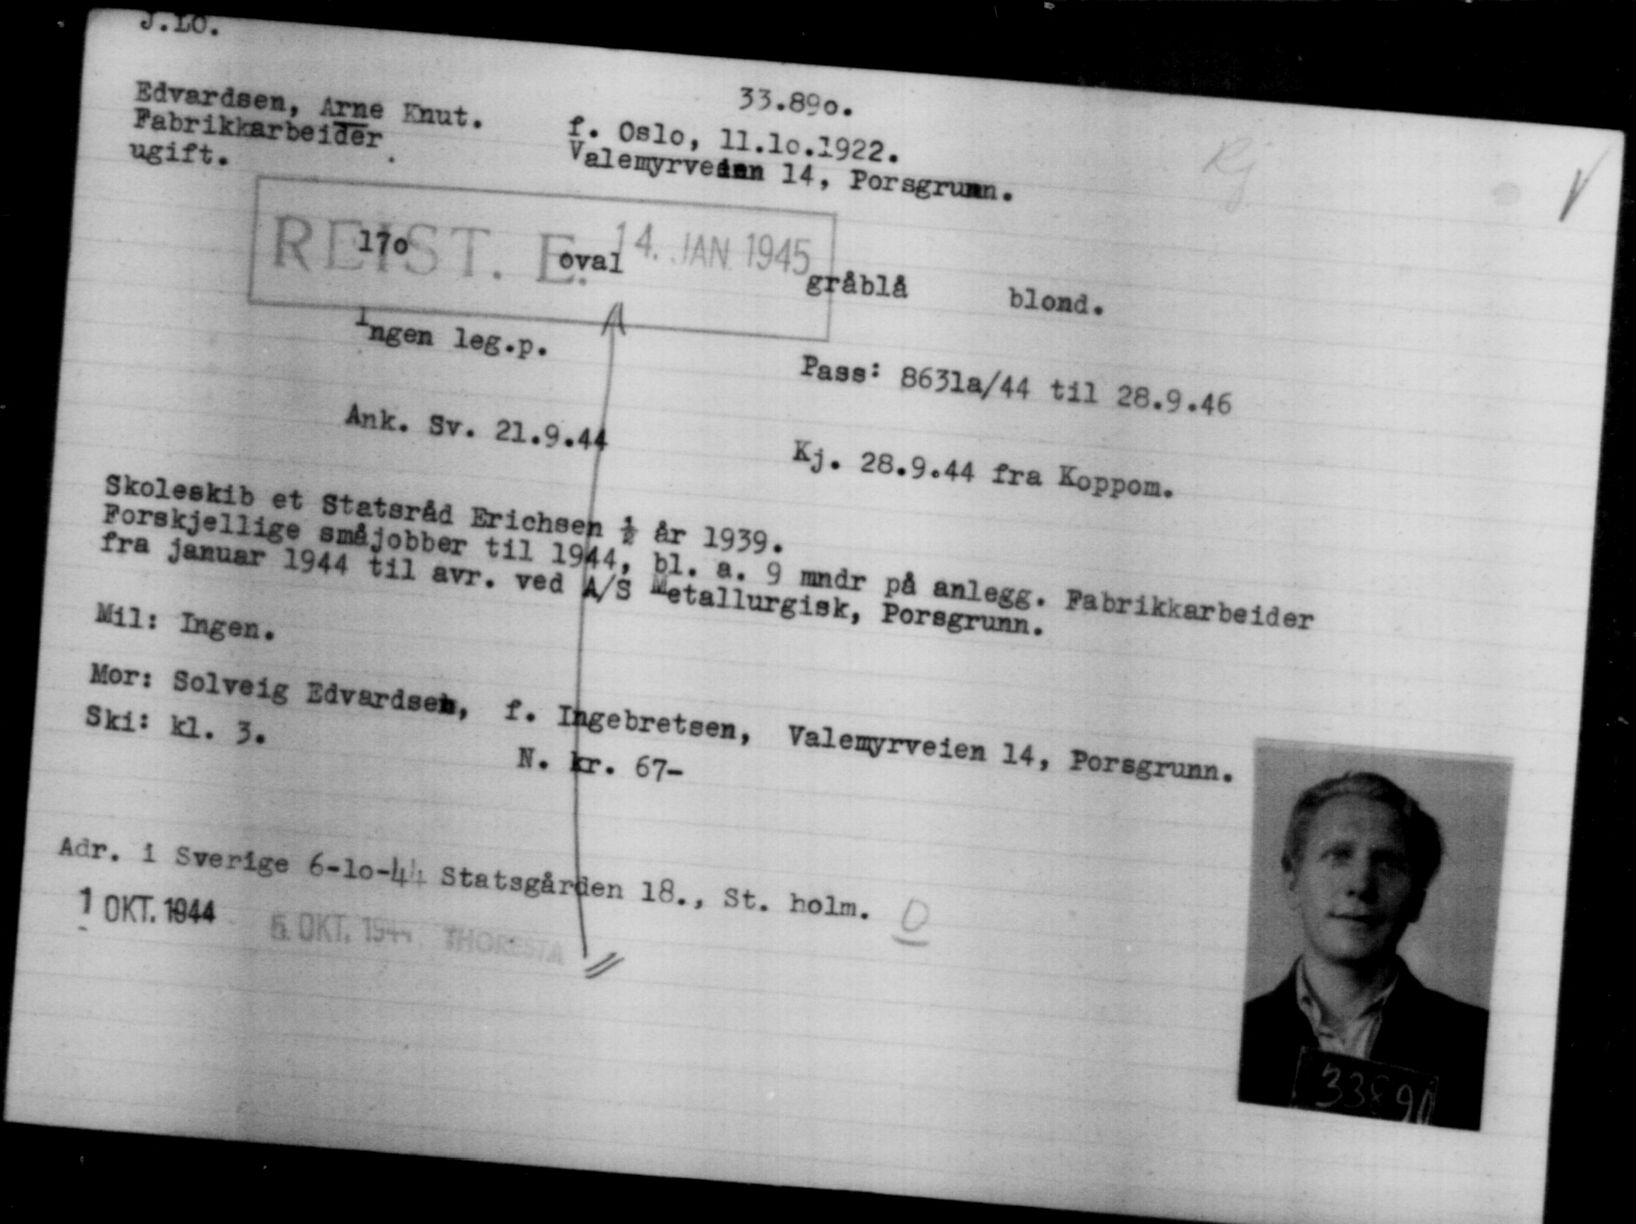 J.LO.
33.89o.
Edvardsen, Arne Knut.
f. Oslo, 11.1o.1922.
Fabrikkarbeider
Valemyrveien 14, Porsgrunn.
ugift.
REIST. E. 14. JAN 1945
17o oval gråblå blond.
Ingen leg.p.
Pass: 8631a/44 til 28.9.46
Ank. Sv. 21.9.44
Kj. 28.9.44 fra Koppom.
Skoleskib et Statsråd Erichsen ½ år 1939.
Forskjellige småjobber til 1944, bl. a. 9 mndr på anlegg. Fabrikkarbeider
fra januar 1944 til avr. ved A/S Metallurgisk, Porsgrunn.
Mil: Ingen.
Mor: Solveig Edvardsen, f. Ingebretsen, Valemyrveien 14, Porsgrunn.
Ski: kl. 3.
N. kr. 67-
Adr. i Sverige 6-1o-44 Statsgården 18., St. holm. O
1 OKT. 1944
6. OKT. 1944 THORESTA
33890